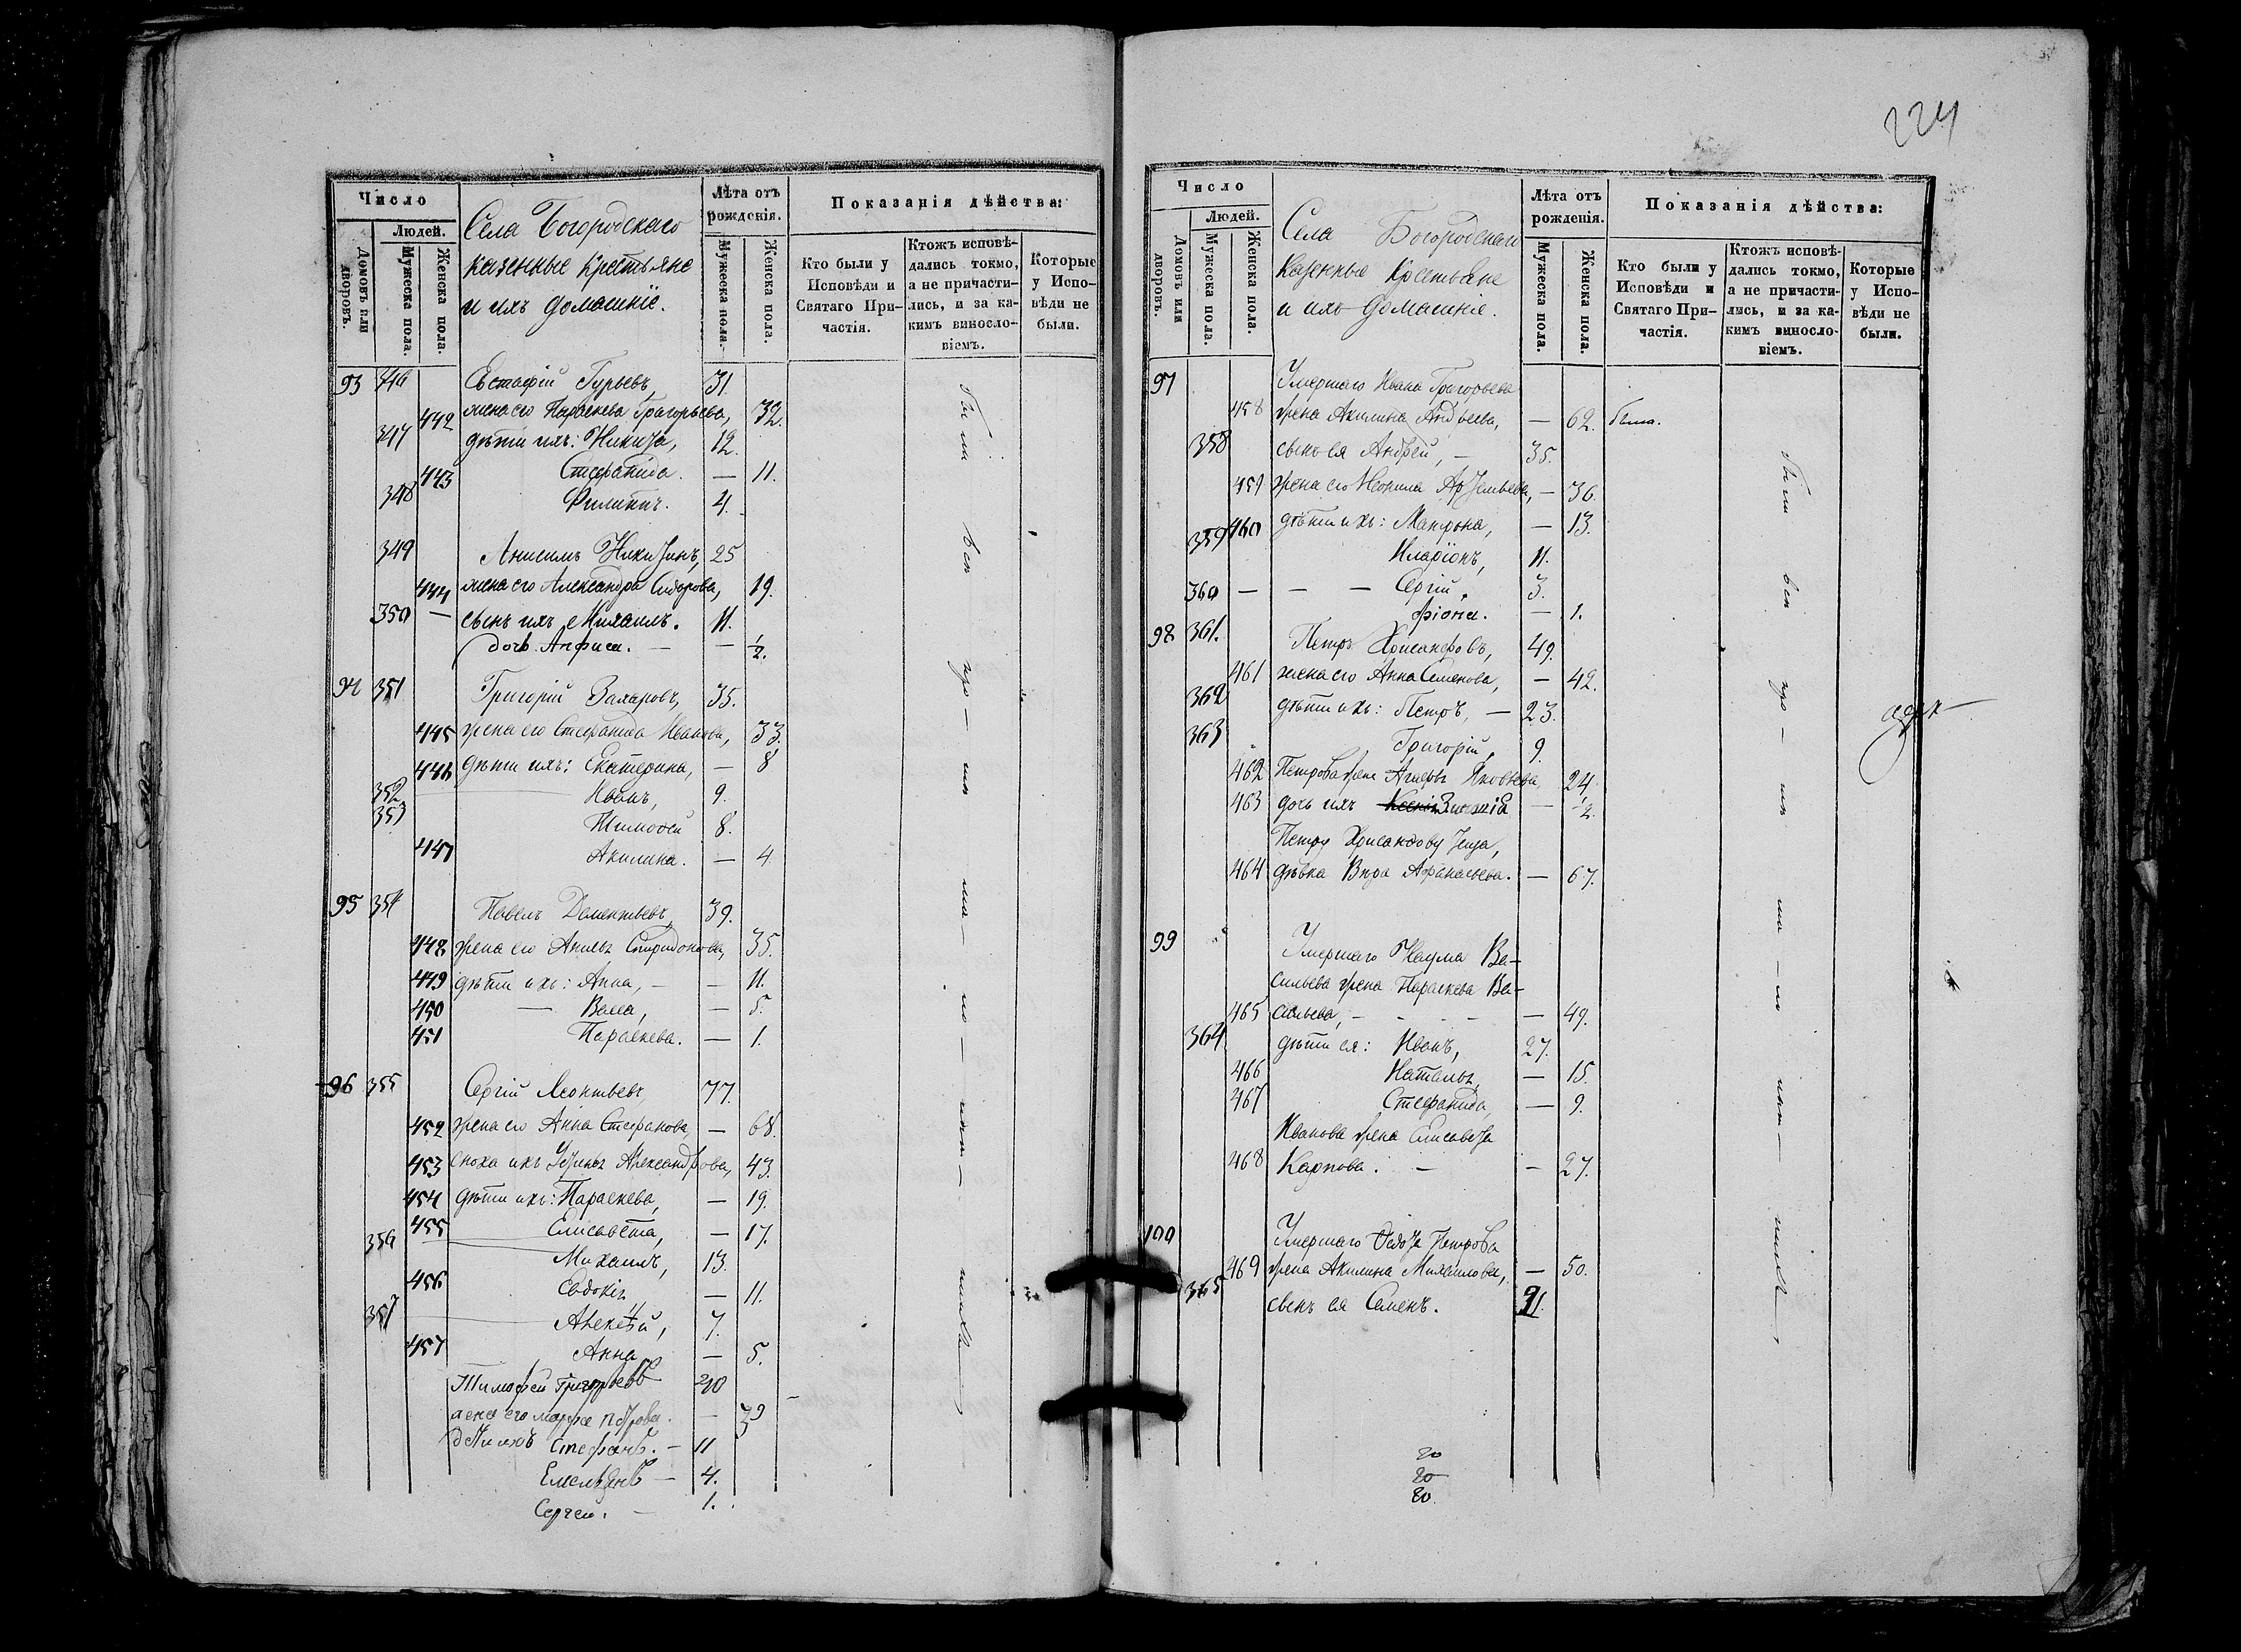 Число
Людей.
Домовъ или дворовъ.
Мужеска пола.
Женска пола.
Села Богородскаго
казенные крестьяне
и ихъ домашніе.
Лѣта отъ рожденія.
Мужеска пола.
Женска пола.
Показанія дѣйства:
Кто были у Исповѣди и Святаго Причастія.
Ктожъ исповѣдались токмо, а не причастились, и за какимъ винословіемъ.
Которые у Исповѣди не были.
93 346 Евстафій Гурьевъ, 31.
442 жена его Параскева Григорьева, 32.
347 дѣти ихъ: Никита, 12.
443 Стефанида. — 11.
348 Филиппъ. 4.
349 Анисимъ Никитинъ, 25
444 жена его Александра Сидорова, 19.
350 — сынъ ихъ Михаилъ. 11.
дочь Анфиса. — — 1/2.
94 351 Григорій Захаровъ, 35.
445 жена его Стефанида Иванова, 33.
446 дѣти ихъ: Екатерина, — 8
352 Иванъ, 9.
353 Тимофей 8.
447 Акилина. — 4
95 354 Павелъ Дементьевъ, 39.
448 жена его Спиридонова, 35.
449 дѣти ихъ: Анна, — — 11.
450 — Васса, — 5.
451 Параскева. — 1.
96 355 Сергій Леонтьевъ, 77.
452 жена его Анна Стефанова, — 68.
453 сноха ихъ Александрова, 43.
454 дѣти ихъ: Параскева, — 19.
455 Елисавета, — 17.
356 Михаилъ, 13.
456 Евдокія — 11.
357 Алексѣй, 7.
457 Анна — 5.
Тимофей Григорьевъ 40
жена его марфа петрова. — 39
Стефанъ. — 11
Емельянъ — 4.
Сергеи. — 1.
Были
вси
про-
ши
ма-
ло-
224
Число
Людей.
Домовъ или дворовъ.
Мужеска пола.
Женска пола.
Села Богородскаго
Казенные Крестьяне
и ихъ домашніе.
Лѣта отъ рожденія.
Мужеска пола.
Женска пола.
Показанія дѣйства:
Кто были у Исповѣди и Святаго Причастія.
Ктожъ исповѣдались токмо, а не причастились, и за какимъ винословіемъ.
Которые у Исповѣди не были.
97 Умершаго Ивана Григорьева
458 жена Акилина Андреева, — 62. Была.
358 сынъ ея Андрей, — 35.
459 жена его Неонила Артемьева, — 36.
460 дѣти ихъ: Матрона, — 13.
359 Иларіонъ, 11.
360 — — — Сергій. 3.
Фіона. — 1.
98 361. Петръ Хрисанфовъ, 49.
461 жена его Анна Семенова, — 42.
362 дѣти ихъ: Петръ, — 23.
363 Григорій, 9.
462 Петрова жена Яковлева 24.
463 дочь ихъ — 1/2.
Петру Хрисанфову теща,
464 дѣвка Вера Афанасьева. — 67.
99 Умершаго Наума Ва-
сильева жена Параскева Ва-
465 сильева, — — — — 49.
364 дѣти ея: Иванъ, 27.
466 Наталья, — 15.
467 Стефанида, — 9.
Иванова жена Елисавета
468 Карпова. — — 27.
100 Умершаго Федота Петрова
469 жена Акилина Михаилова, — 50.
365 сынъ ея Семенъ. 21.
были
вси
про-
ма-
ло-
20
20
20.